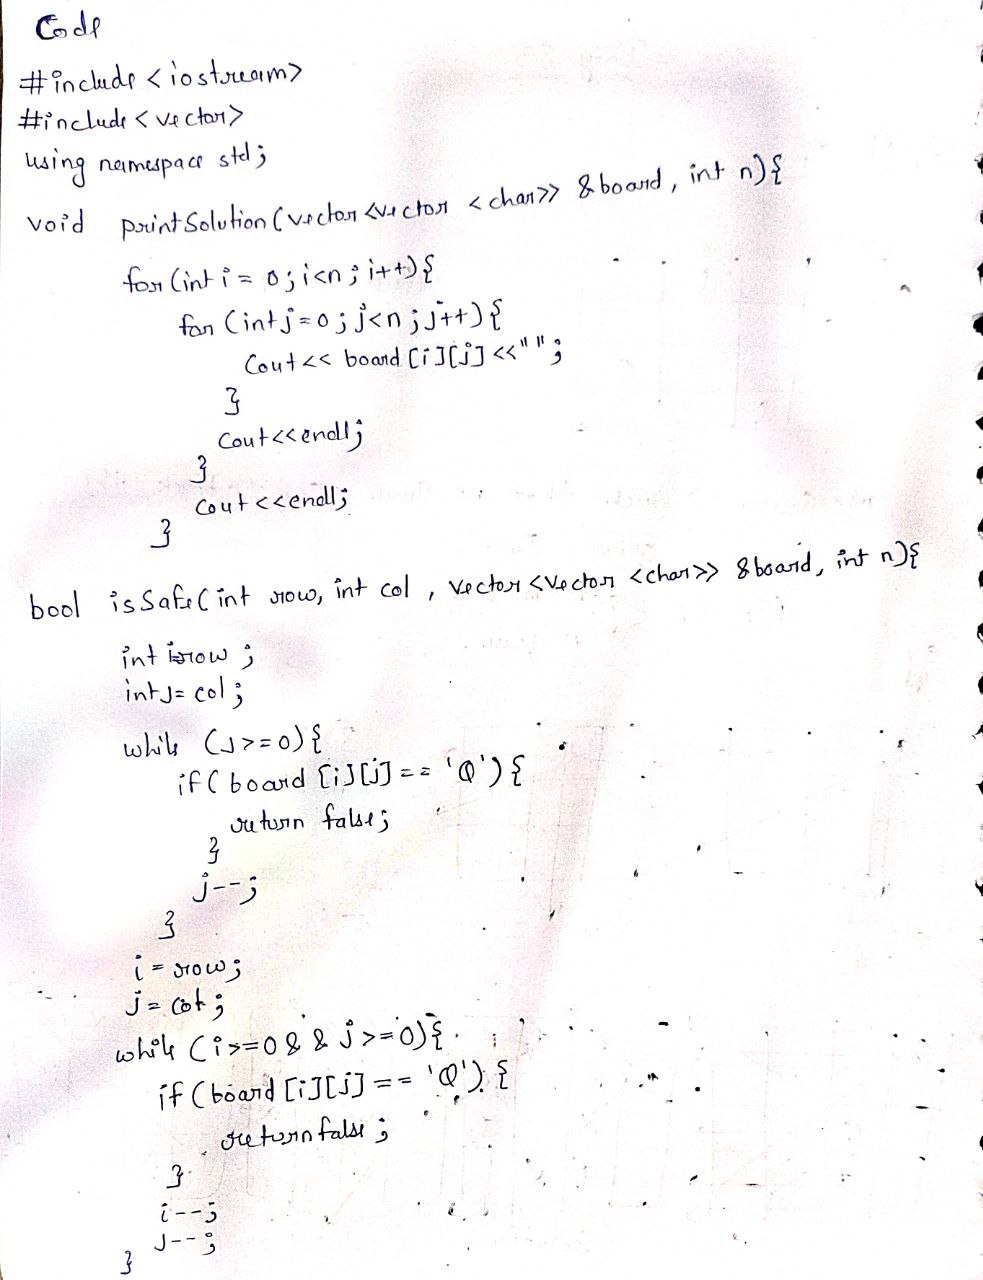 Code
#include <iostream>
#include <vector>
using namespace std;
void printSolution(vector<vector <char>> &board, int n){
for (int i = 0; i<n; i++){
for (int j=0; j<n; j++){
Cout<< board [i][j] <<" ";
}
Cout<<endl;
}
Cout <<endl;
}
bool isSafe(int row, int col, vector<vector <char>> &board, int n){
int i=row;
int j= col;
while (j>=0){
if( board [i][j] == 'Q'){
return false;
}
j--;
}
i = row;
j = col;
while (i>=0 && j>=0){
if (board [i][j] == 'Q') {
return false;
}
i--;
j--;
}